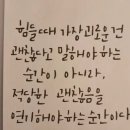 힘들때 가장 괴로운건
괜찮다고 말해야 하는
순간이 아니라,
적당한 괜찮음을
연기해야하는 순간이다